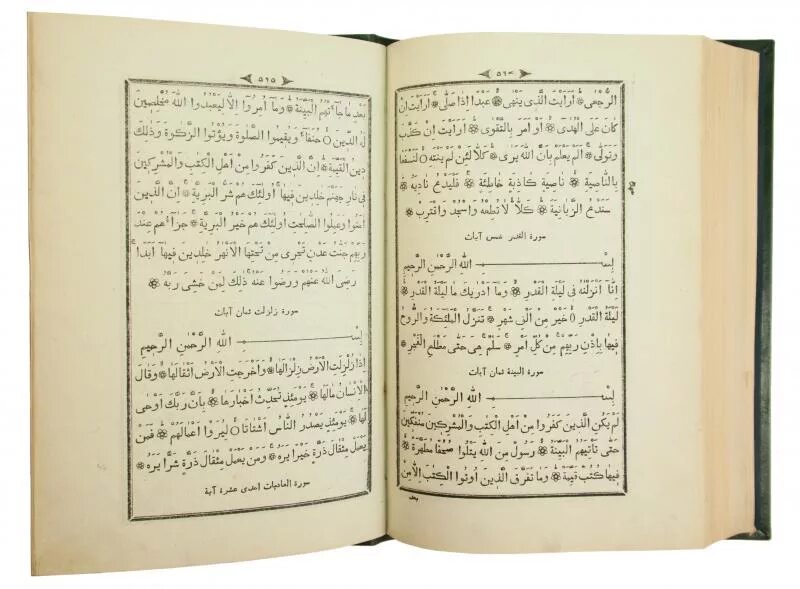 ٥٦٤
الرجعى ارايت الذى ينهى عبدا اذا صلى ارايت ان
كان على الهدى او امر بالتقوى ارايت ان كذب
وتولى الم يعلم بان الله يرى كلا لئن لم ينته لنسفعا
بالناصية ناصية كاذبة خاطئة فليدع ناديه
سندع الزبانية كلا لا تطعه واسجد واقترب
سورة القدر خمس آيات
بسم الله الرحمن الرحيم
انا انزلنه فى ليلة القدر وما ادريك ما ليلة القدر
ليلة القدر خير من الف شهر تنزل الملئكة والروح
فيها باذن ربهم من كل امر سلم هى حتى مطلع الفجر
سورة البينة ثمان آيات
بسم الله الرحمن الرحيم
لم يكن الذين كفروا من اهل الكتب والمشركين منفكين
حتى تاتيهم البينة رسول من الله يتلوا صحفا مطهرة
فيها كتب قيمة وما تفرق الذين اوتوا الكتب الا من
بعد
٥٦٥
بعد ما جاءتهم البينة وما امروا الا ليعبدوا الله مخلصين
له الدين حنفاء ويقيموا الصلوة ويؤتوا الزكوة وذلك
دين القيمة ان الذين كفروا من اهل الكتب والمشركين
فى نار جهنم خلدين فيها اولئك هم شر البرية ان الذين
امنوا وعملوا الصلحت اولئك هم خير البرية جزاؤهم عند
ربهم جنت عدن تجرى من تحتها الانهر خلدين فيها ابدا
رضى الله عنهم ورضوا عنه ذلك لمن خشى ربه
سورة زلزلت ثمان آيات
بسم الله الرحمن الرحيم
اذا زلزلت الارض زلزالها واخرجت الارض اثقالها وقال
الانسان مالها يومئذ تحدث اخبارها بان ربك اوحى
لها يومئذ يصدر الناس اشتاتا ليروا اعمالهم فمن
يعمل مثقال ذرة خيرا يره ومن يعمل مثقال ذرة شرا يره
سورة العاديات احدى عشرة آية